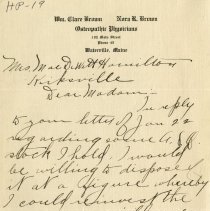 HP-19
Wm. Clare Brown Nora R. Brown
Osteopathic Physicians
Waterville, Maine
Mrs. Mae DeWitt Hamilton
Hicksville
Dear Madam:
In reply
to your letter of Jan 22
regarding some
stock I hold. I would
be willing to dispose of
it at a figure whereby
I could reinvest the